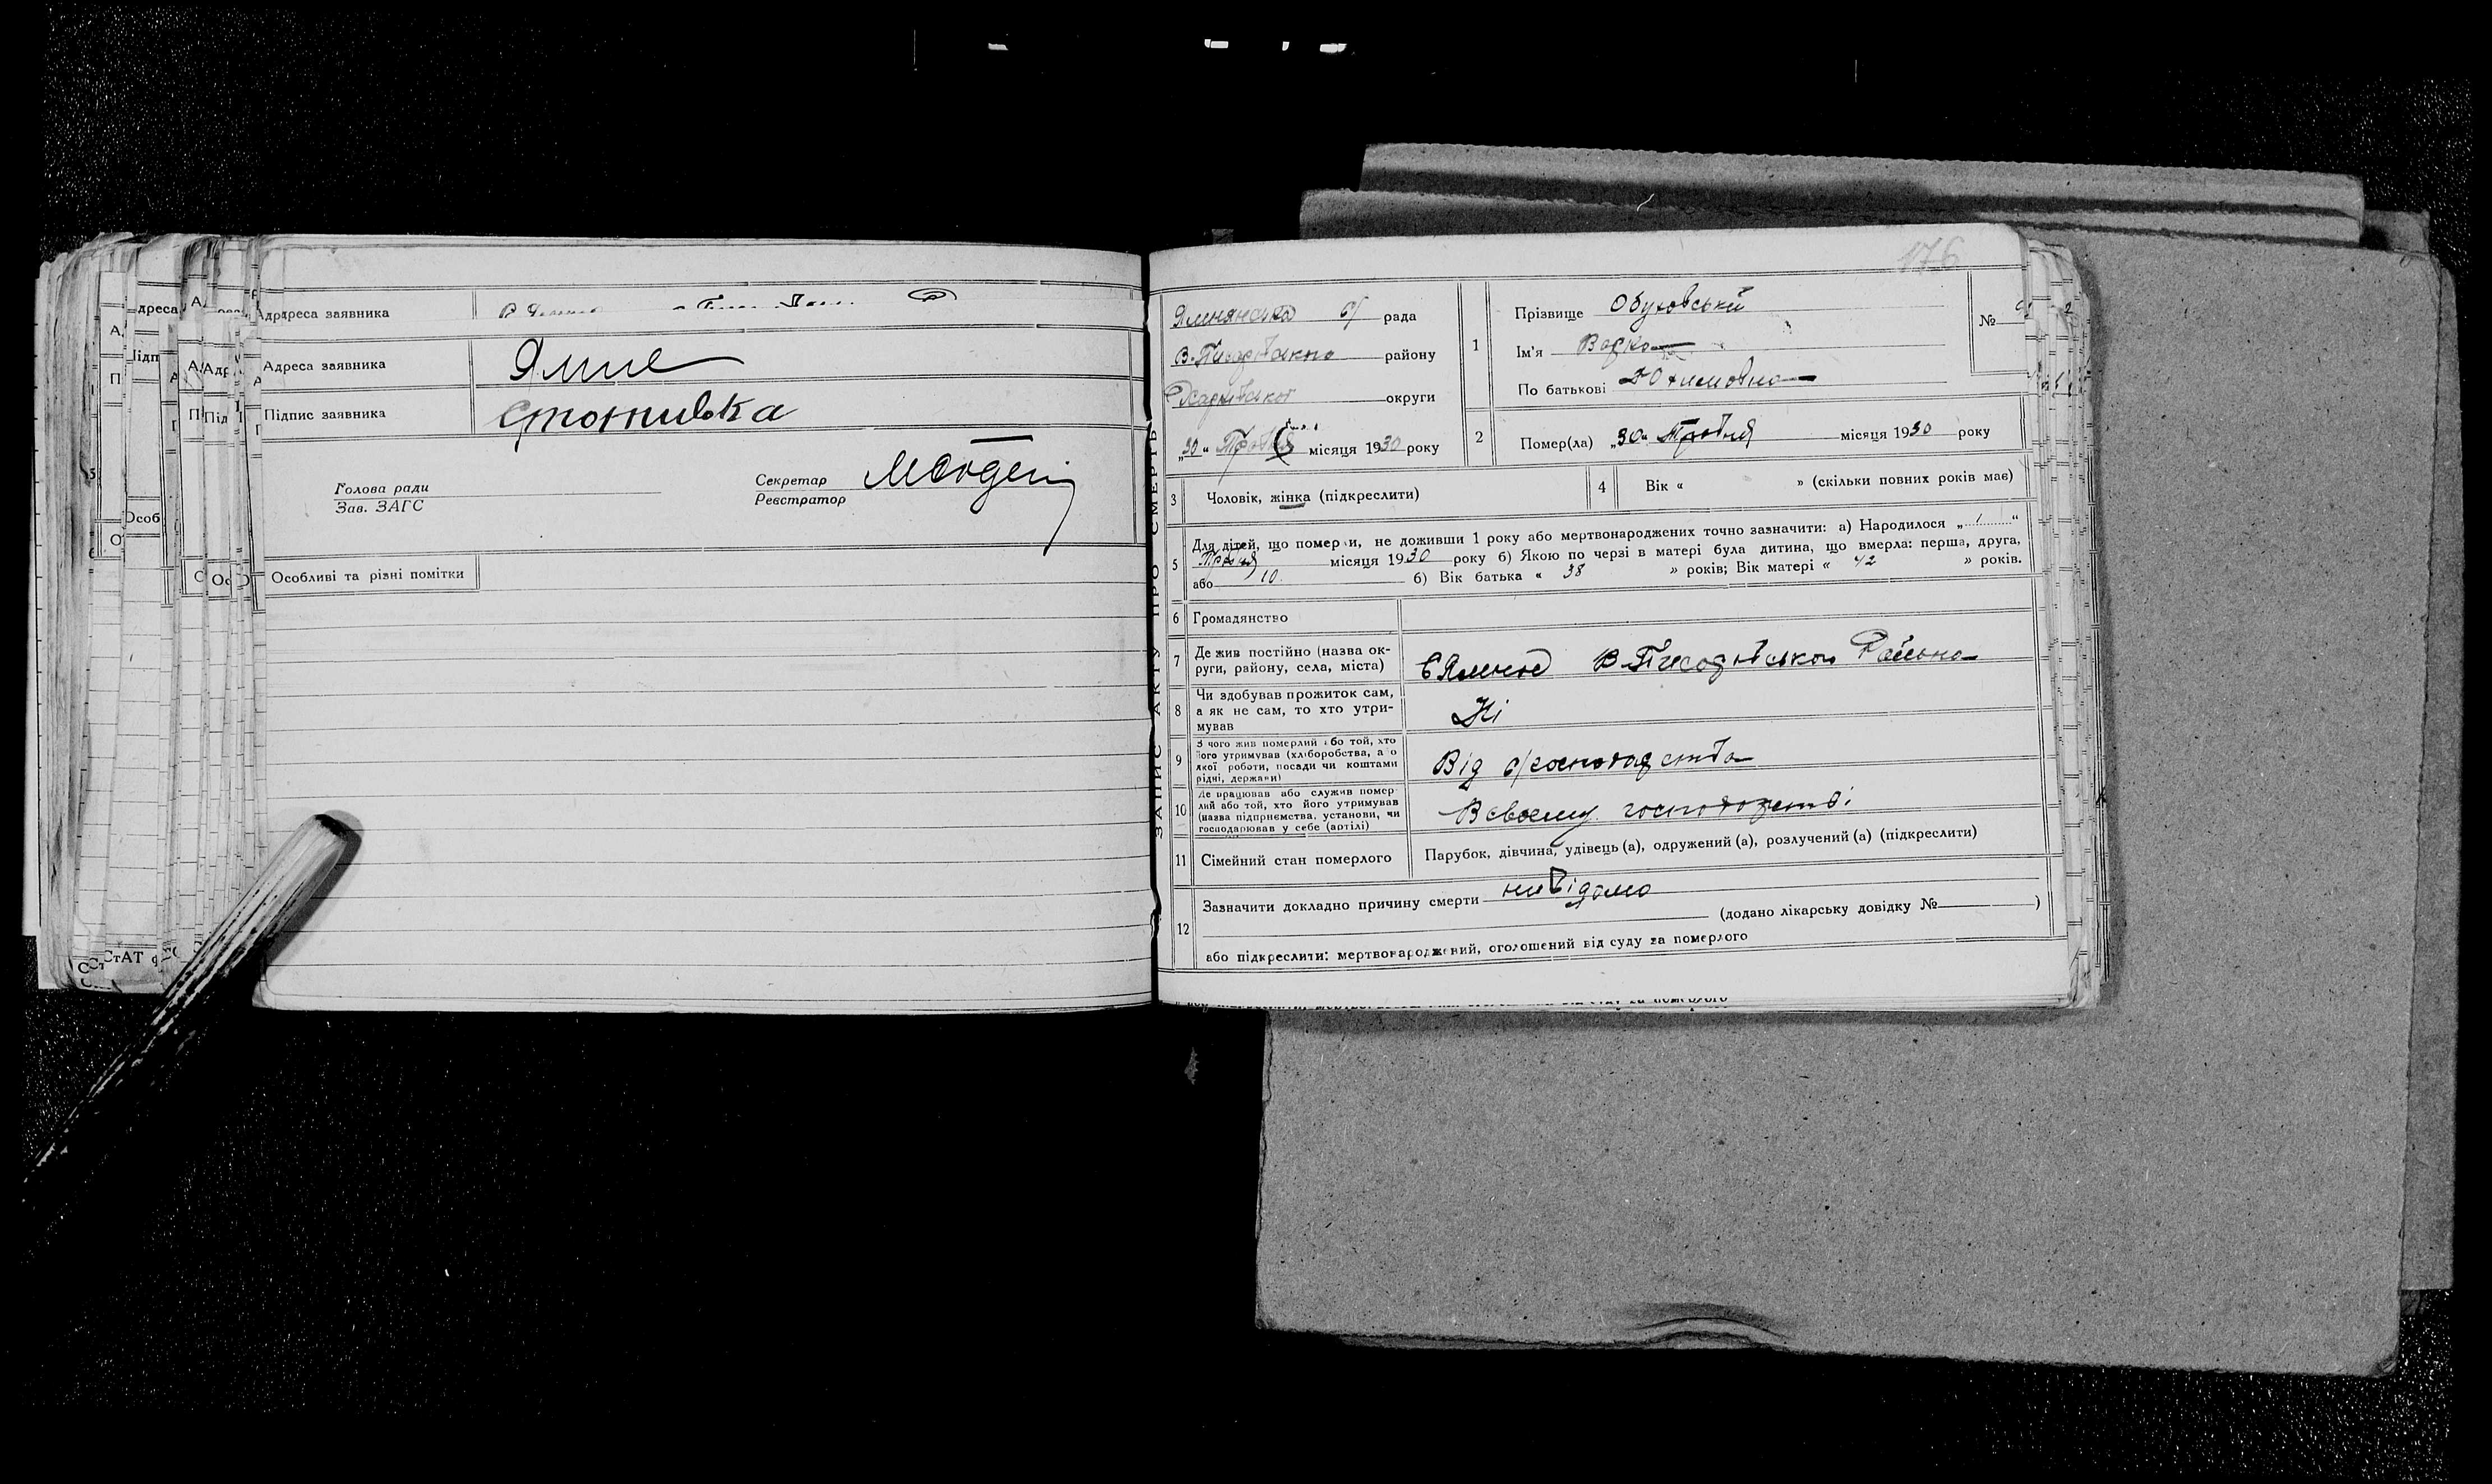 Адреса заявника
Адреса заявника Ямне
Підпис заявника
Голова ради
Зав. ЗАГС
Секретар
Реєстратор
Особливі та різні помітки
176
ЗАПИС АКТУ ПРО СМЕРТЬ
Ямнянська с/ рада
В-Писарівського району
Харківської округи
„30" Травня місяця 1930 року
1
Прізвище Обуховській
Ім'я
По батькові Юхимовна
№
2
Помер(ла) „30" Травня місяця 1930 року
3 Чоловік, жінка (підкреслити)
4 Вік « » (скільки повних років має)
5 Для дітей, що померли, не доживши 1 року або мертвонароджених точно зазначити: а) Народилося „1"
Травня місяця 1930 року б) Якою по черзі в матері була дитина, що вмерла: перша, друга,
або 10 б) Вік батька « 38 » років; Вік матері « 42 » років.
6 Громадянство
7 Де жив постійно (назва ок-
руги, району, села, міста)
В-Писарівського Района
8 Чи здобував прожиток сам,
а як не сам, то хто утри-
мував
Ні
9 З чого жив померлий або той, хто
його утримував (хліборобства, або
якої роботи, посади чи коштами
рідні, держави)
Від с/господарства
10 Де працював або служив помер-
лий або той, хто його утримував
(назва підприємства, установи, чи
господарював у себе (артілі)
В своєму господарстві
11 Сімейний стан померлого
Парубок, дівчина, удівець(а), одружений(а), розлучений(а) (підкреслити)
12 Зазначити докладно причину смерти невідомо
(додано лікарську довідку № )
або підкреслити: мертвонароджений, оголошений від суду за померлого